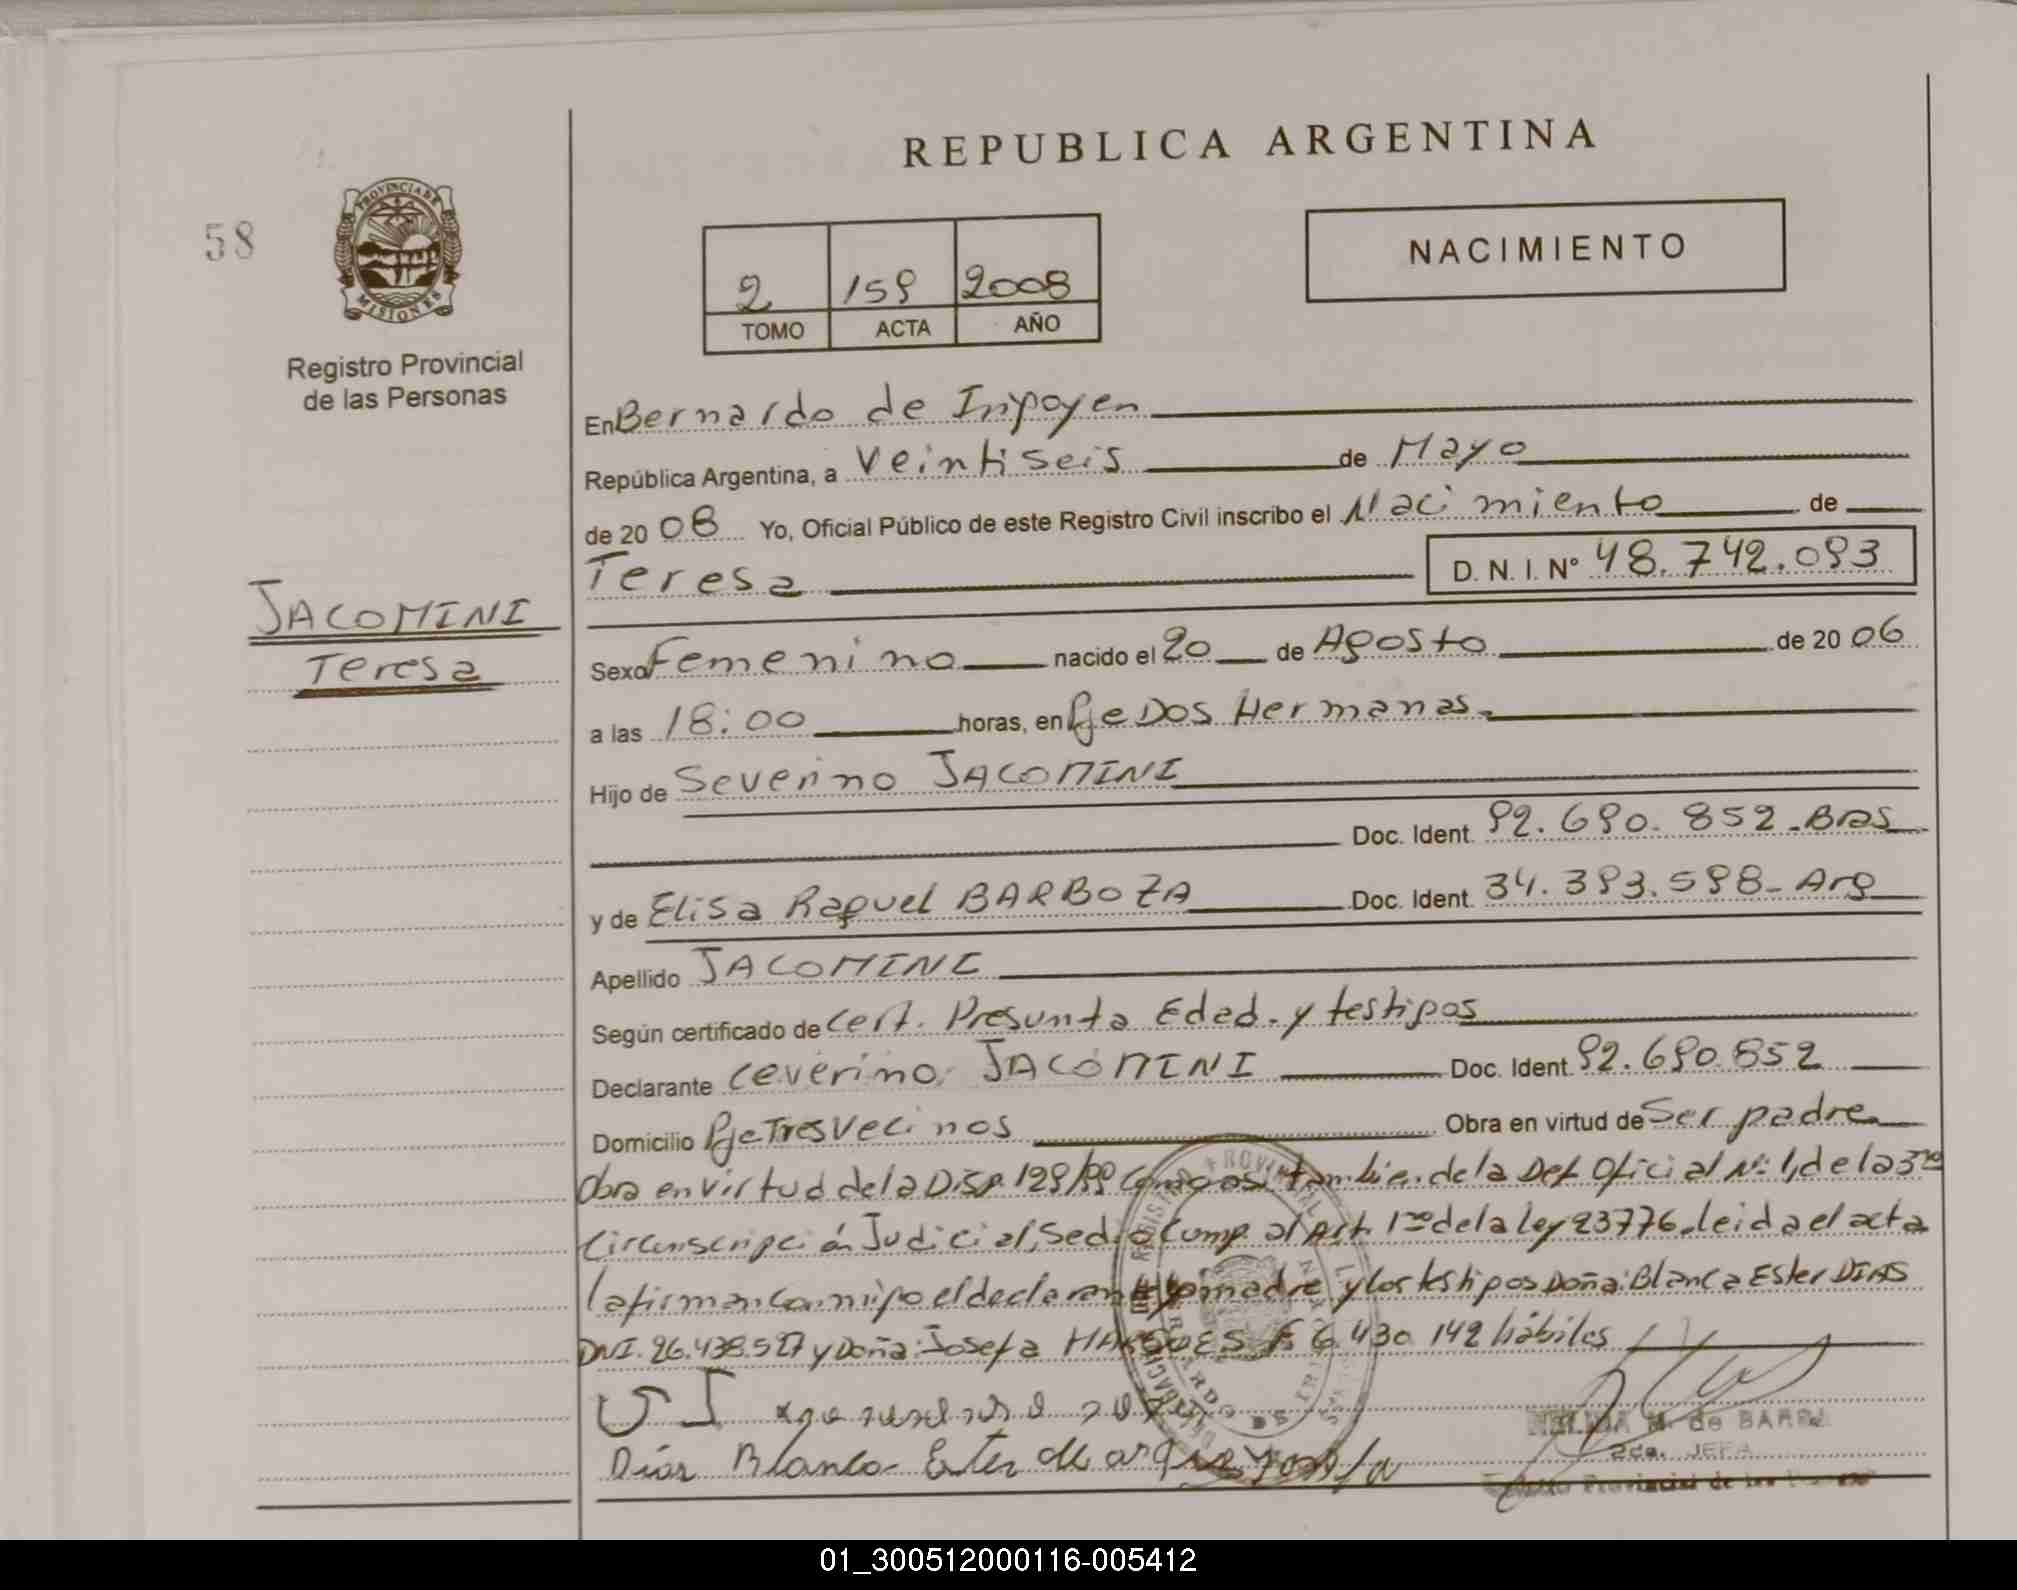 REPUBLICA ARGENTINA
58
PROVINCIA DE
MISIONES
Registro Provincial
de las Personas
2 159 2008
TOMO ACTA AÑO
NACIMIENTO
En Bernardo de Irigoyen
República Argentina, a Veintiseis de Mayo
de 20 08 Yo, Oficial Público de este Registro Civil inscribo el Nacimiento de
Teresa D. N. I. Nº 48.742.093
JACOMINI
Teresa
Sexo Femenino nacido el 20 de Agosto de 20 06
a las 18:00 horas, en Pje Dos Hermanas.
Hijo de Severino JACOMINI
Doc. Ident. 92.690.852-Bras
y de Elisa Raquel BARBOZA Doc. Ident. 34.393.598-Arg
Apellido JACOMINI
Según certificado de Cert. Presunta Edad. y testigos
Declarante Ceverino JACOMINI Doc. Ident. 92.690.852
Domicilio Pje Tres Vecinos Obra en virtud de Ser padre
Obra en virtud de la Disp. 129/99 Como asi tambien de la Def. Oficial Nº 1, de la 3ra
Circunscripción Judicial, Se dio Cump. al Art. 1ro de la Ley 23776. leida el acta
la firman conmigo el declarante madre y los testigos Doña: Blanca Ester DIAS
DNI. 26.438.527 y Doña: Josefa F 6.430.142 hábiles
Días Blanca Ester
de BARRA
2da. JEFA
Provincial de las
01_300512000116-005412